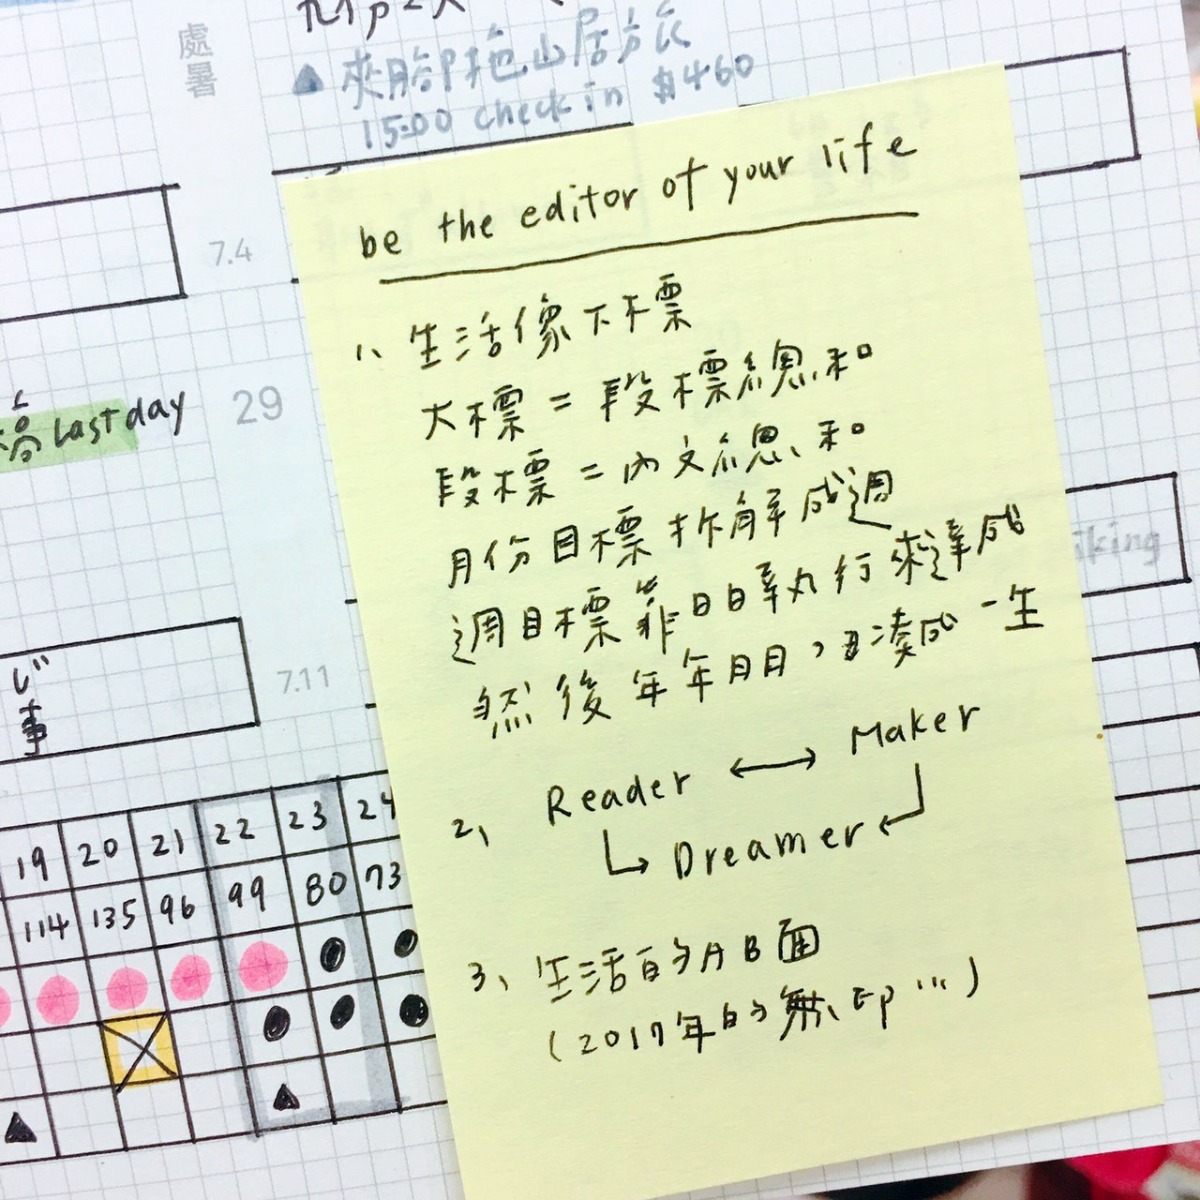 處暑
▲ 夾腳拖山居旅
15:00 check in $460
7.4
last day
29
king
じ
事
7.11
19 20 21 22 23 24
114 135 96 99 80 73
be the editor of your life
1、生活像下標
大標 = 段標總和
段標 = 內文總和
月份目標拆解成週
週目標靠日日執行來達成
然後年年月月,日湊成一生
2、Reader ↔ Maker
Dreamer
3、生活的AB面
(2017年的無印…)